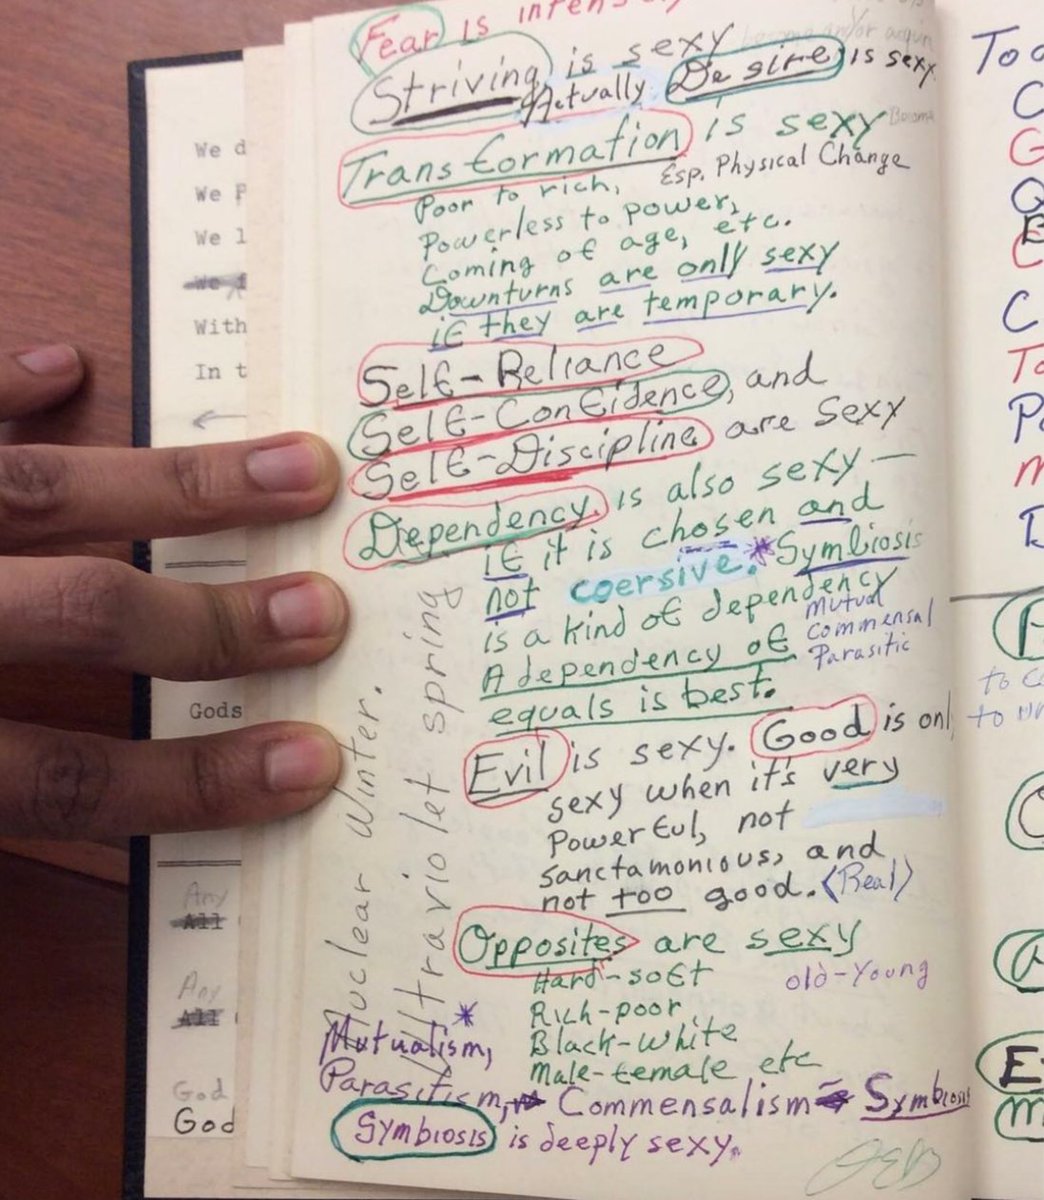 Fear is
become and/or acquir
Striving is sexy
Actually Desire is sexy
Transformation is sexy
Esp. Physical Change
Poor to rich,
Powerless to power,
Coming of age, etc.
Downturns are only sexy
if they are temporary.
Self-Reliance
Self-Confidence, and
Self-Discipline are sexy
Dependency is also sexy —
if it is chosen and
not coersive. *Symbiosis
is a kind of dependency
Mutual
Commensal
Parasitic
A dependency of
equals is best.
Evil is sexy. Good is onl
sexy when it's very
Powerful, not
sanctamonious, and
not too good. <Real>
Opposites are sexy
Hard-soft
old-Young
Rich-poor
Black-white
Male-female etc
*
Mutualism,
Parasitism, Commensalism = Symbiosis
Symbiosis is deeply sexy.
OEB
Nuclear Winter.
Ultraviolet spring
We d
We
We l
We f
With
In t
←
Gods
Any
All
Any
All
God
God
To
C
G
O
E
C
C
To
P
m
D
to c
to
E
m